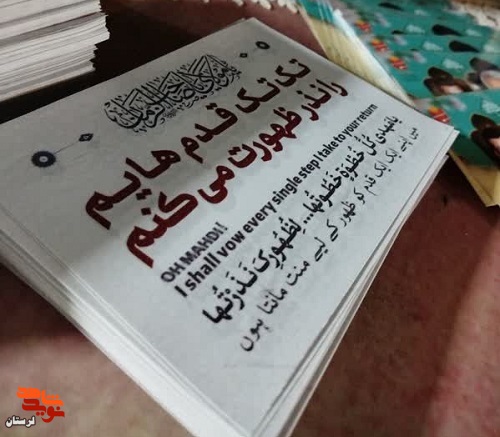 تک تک قدم هایم
را نذر ظهورت می کنم
OH MAHDI!
I shall vow every single step I take to your return
یا مَهدی کُلُّ خُطْوَةٍ خَطَوْتُها.. لِظُهُورِکَ نَذَرْتُها
میں اپنے ایک ایک قدم کو ظہور کے لیے منت مانتا ہوں
نوید شاهد
لرستان